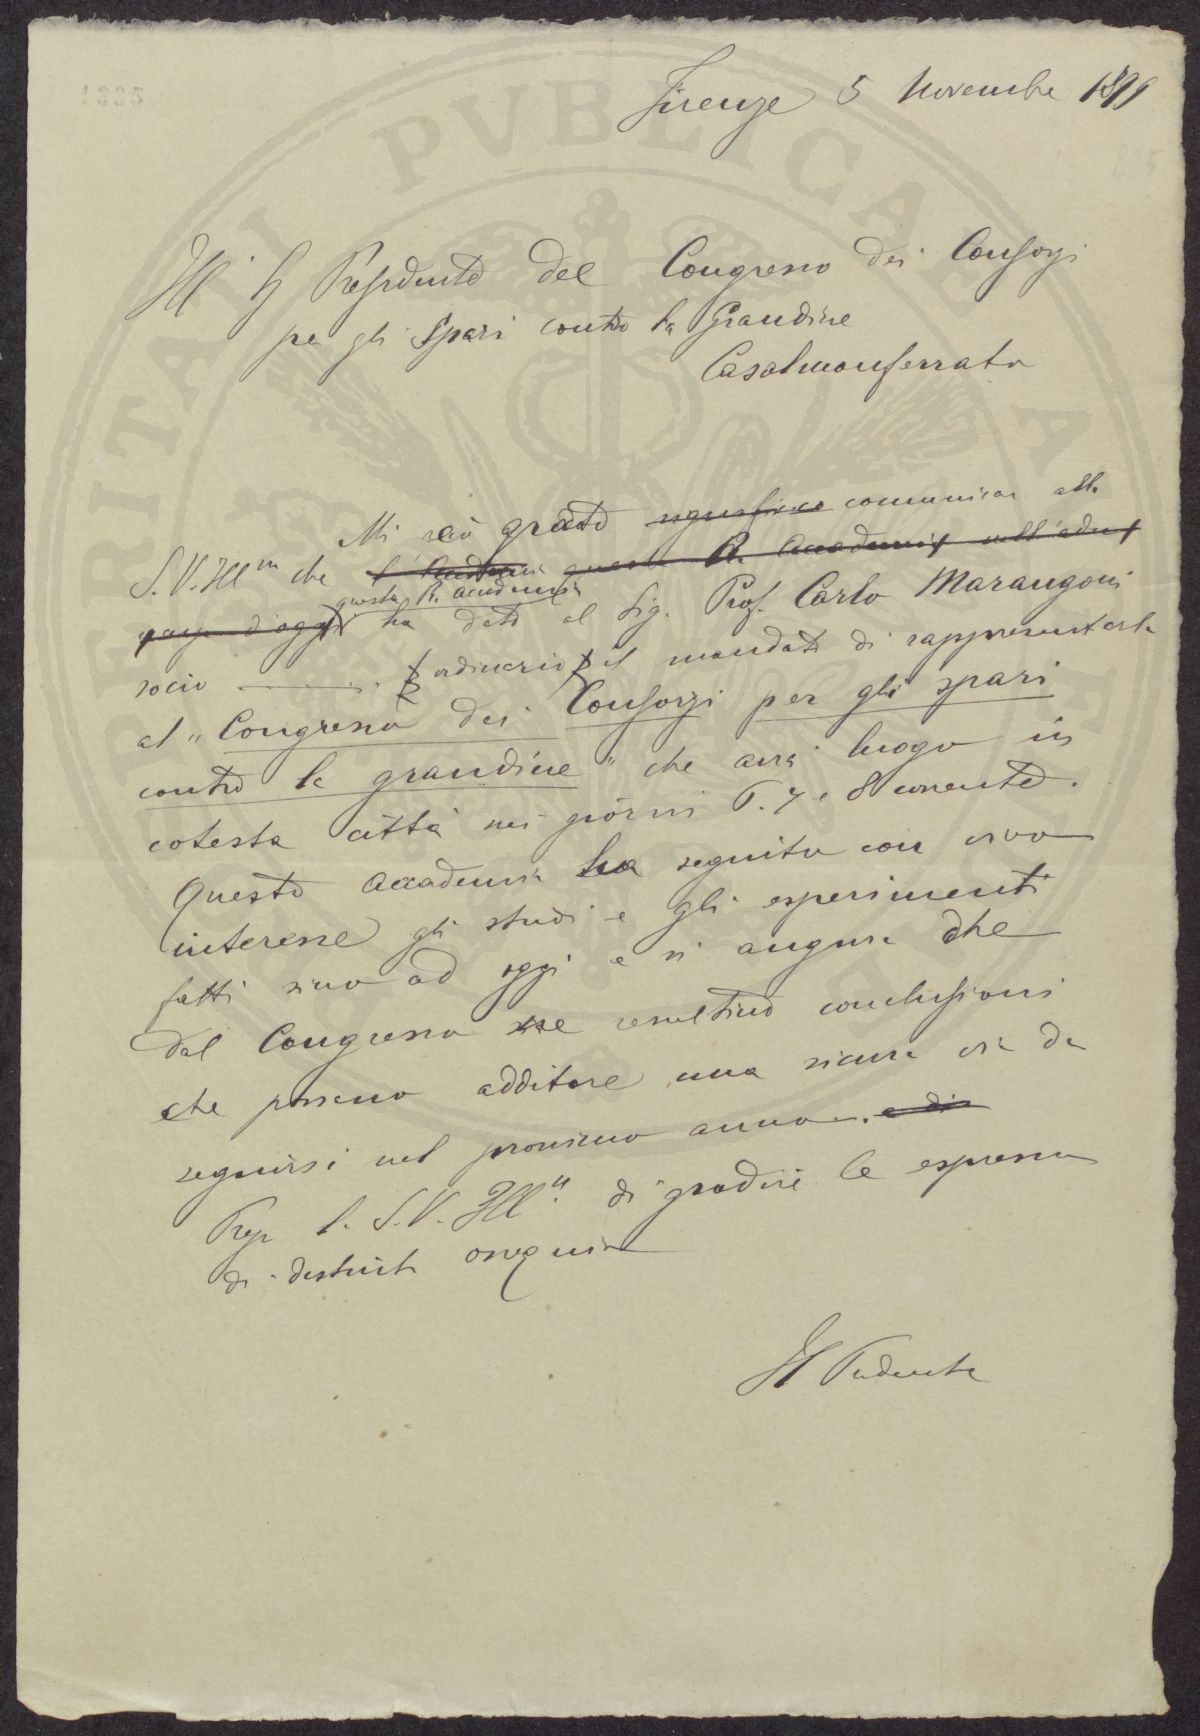 Firenze 5 Novembre 1899
Ill. S. Presidente del Congresso dei Consorzi
per gli Spari contro la Grandine
Casalmonferrato
Mi è grato significare comunicar alla
S.V. Illma che l'Accademia questa R. Accademia nell'adu
nanza d'oggi questa R. Accademia ha dato al Sig. Prof. Carlo Marangoni
socio ordinario il mandato di rappresentarla
al "Congresso dei Consorzi per gli spari
contro la grandine" che avrà luogo in
cotesta città nei giorni 6. 7 e 8 corrente.
Questa Accademia ha seguito con vivo
interesse gli studi e gli esperimenti
fatti sino ad oggi e si augura che
dal Congresso ne resultino conclusioni
che possano additare una sicura via da
seguirsi nel prossimo anno. e di
Prego la S.V. Illma di gradire le espressioni
di distinto ossequio
Il Presidente